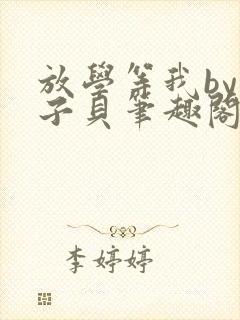 放學等我by
子貝筆趣閣
李婷婷